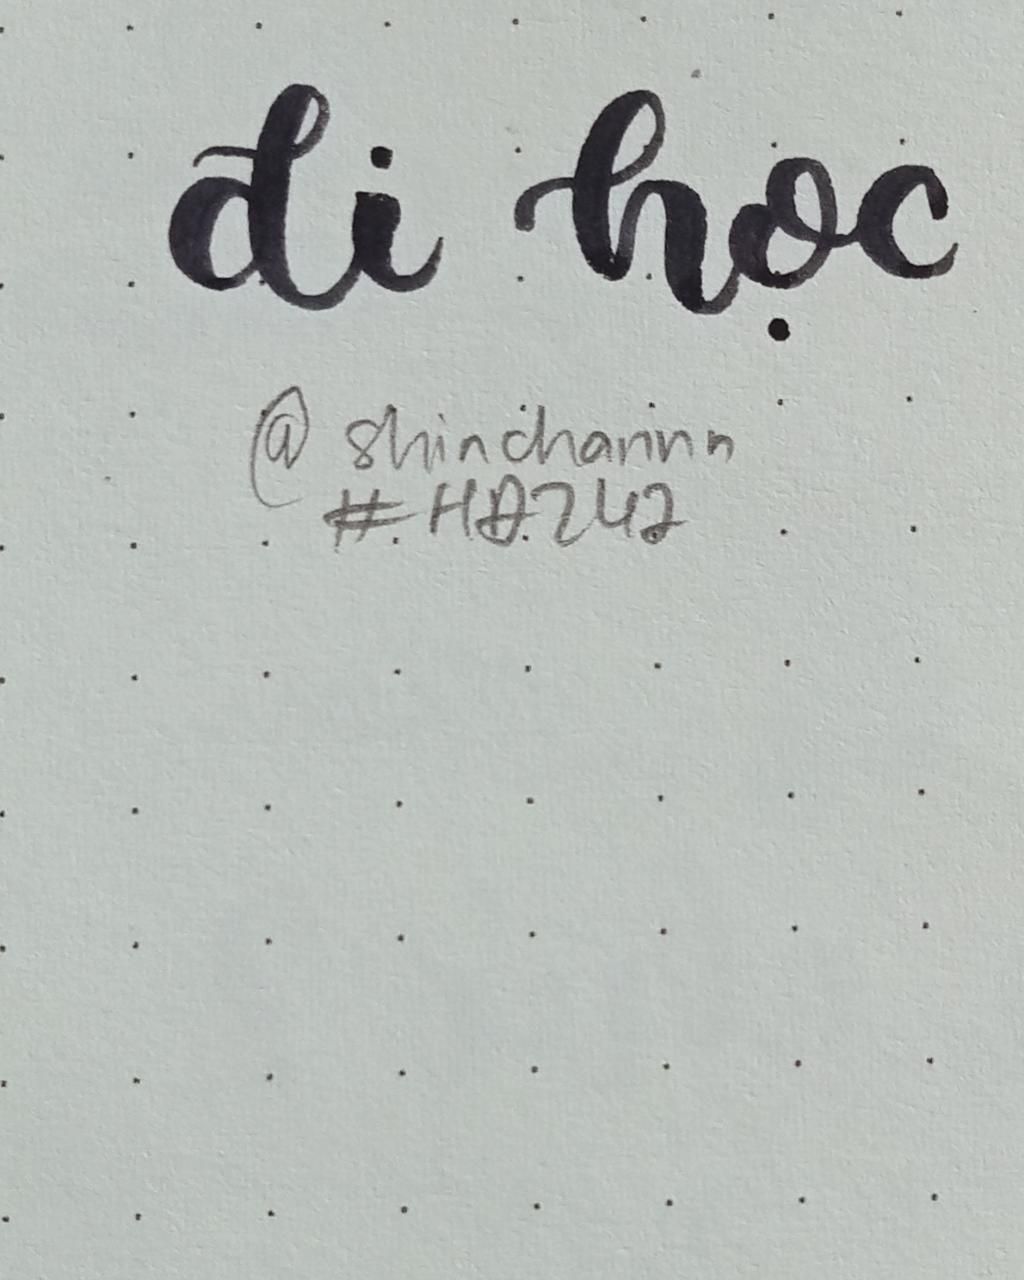 đi học
@ shinchannn
#HD242